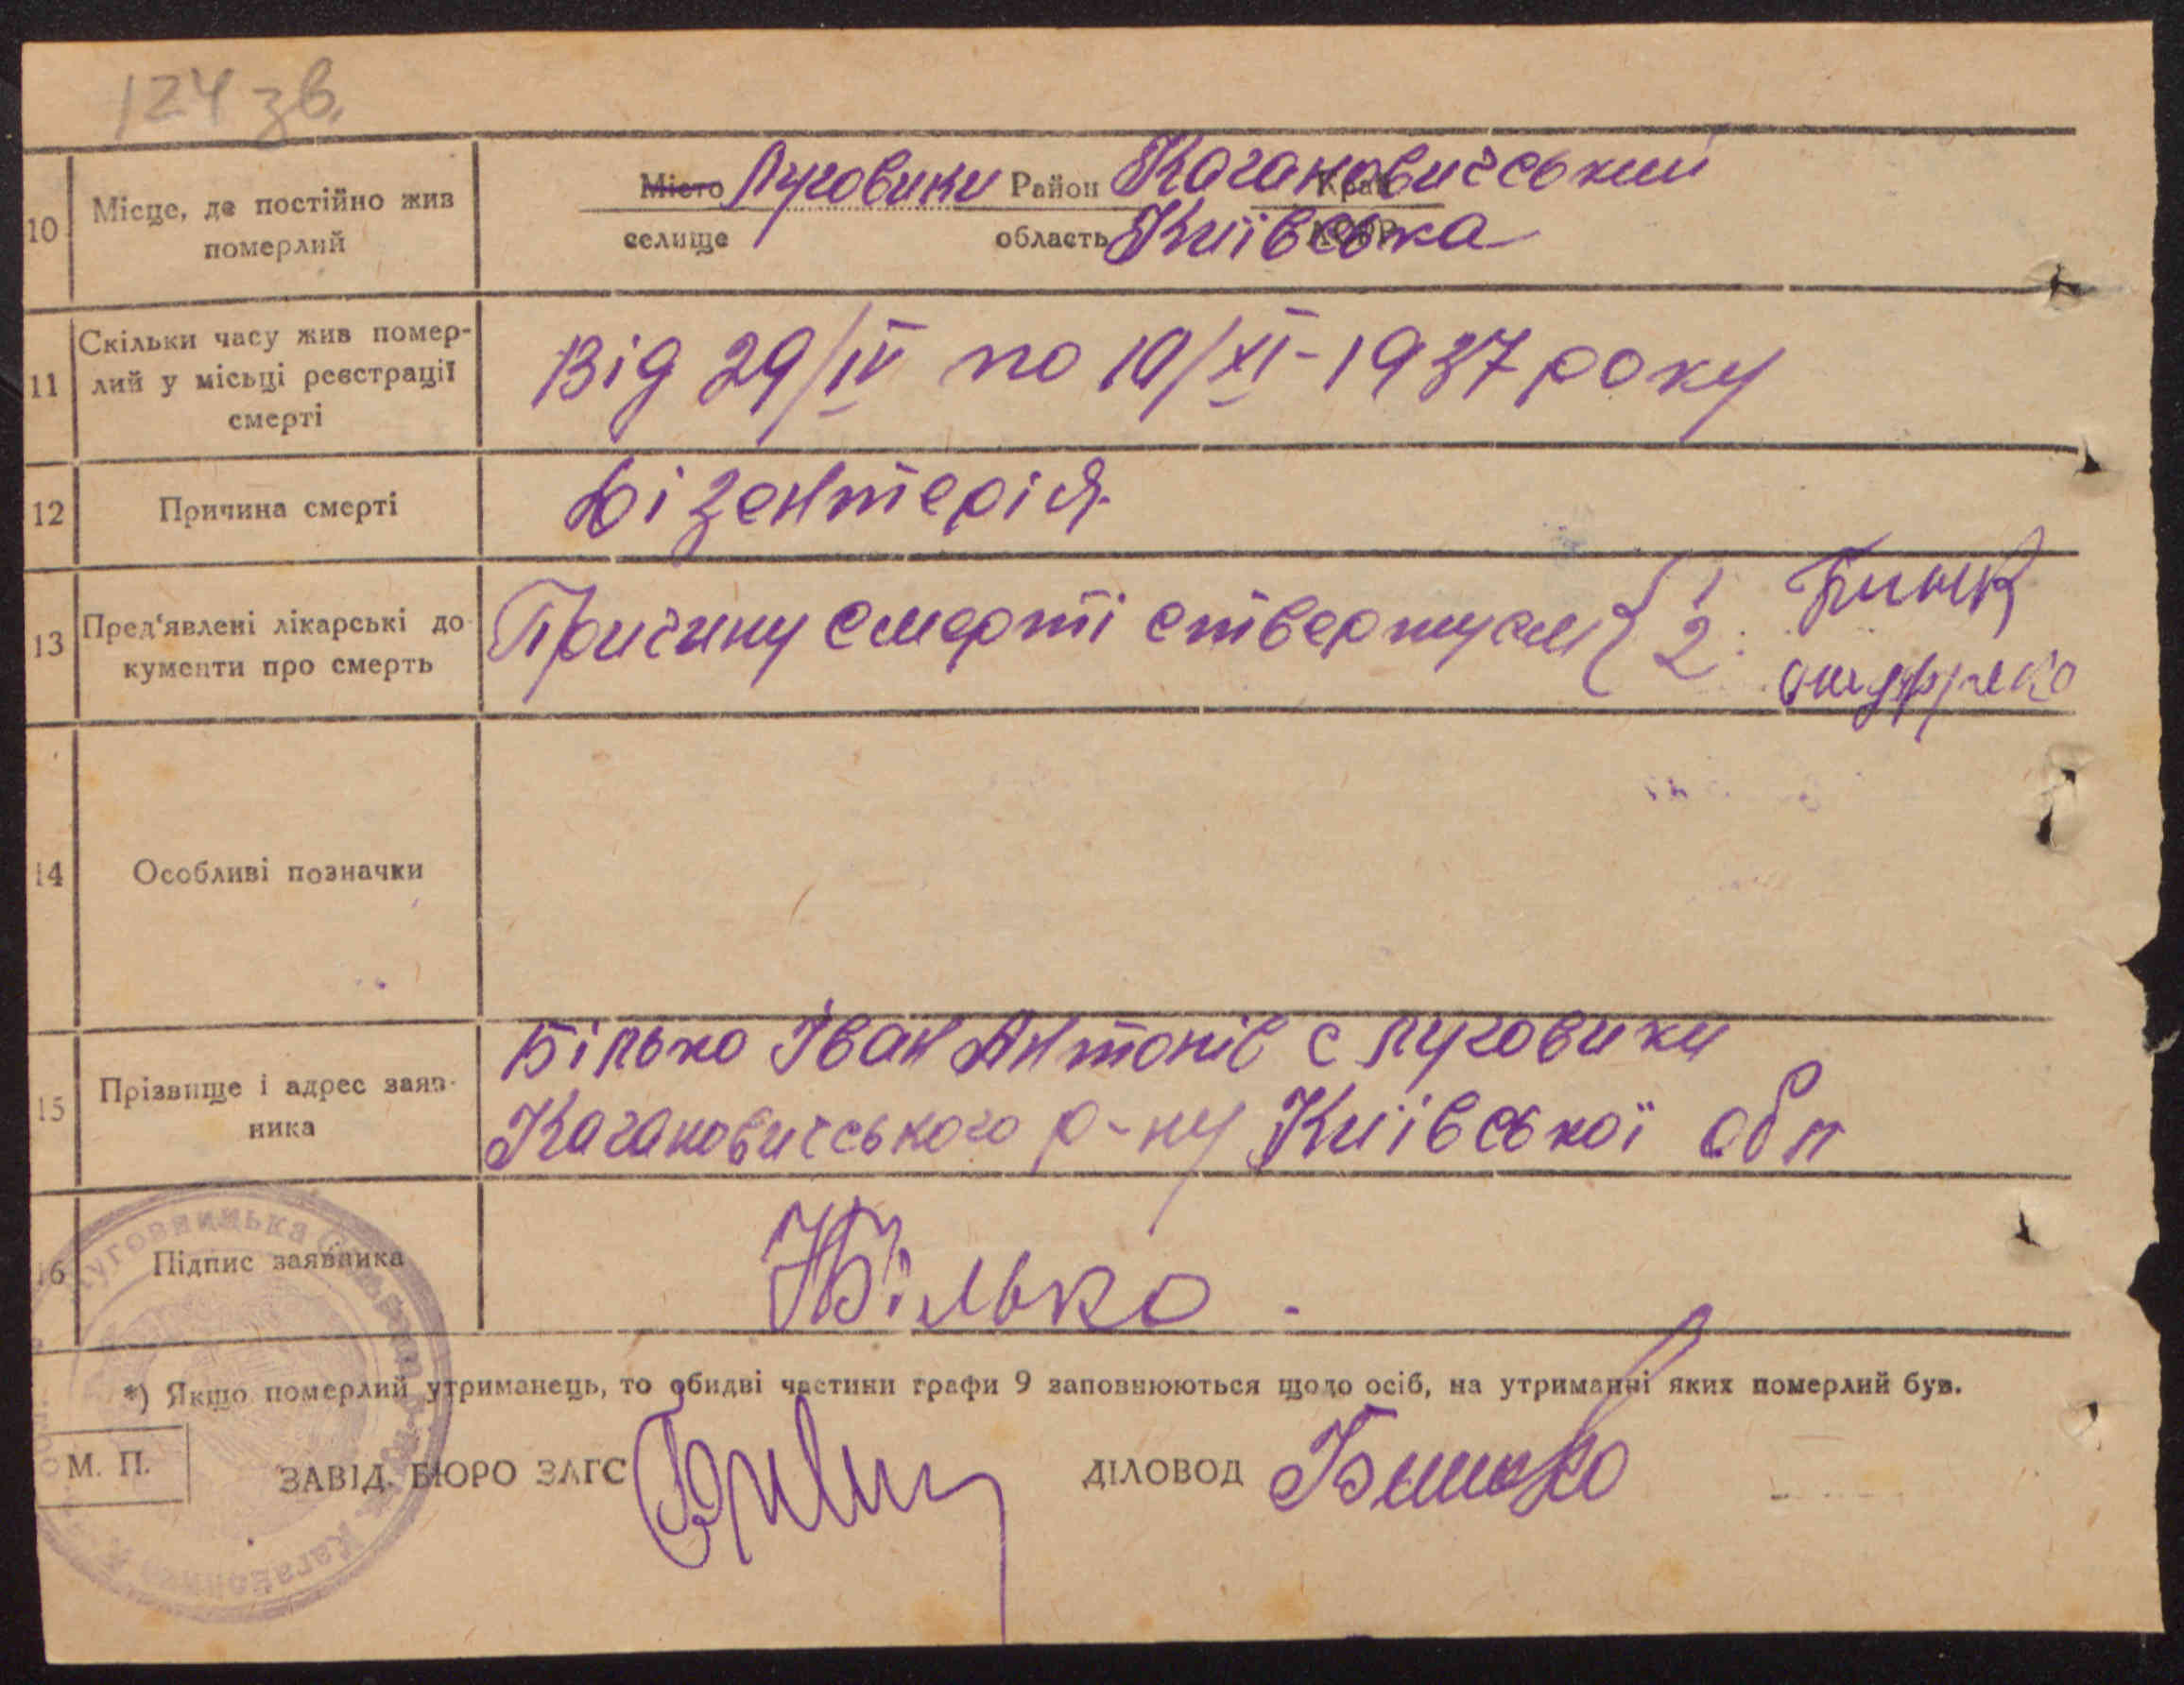 124 зв.
10 Місце, де постійно жив померлий
Місто Луговики Район Кагановичський Край
селище область Київська АСРР
11 Скільки часу жив помер-
лий у місьці реєстрації
смерті
Від 29/IV по 10/XI-1937 року
12 Причина смерті Дізентерія
13 Пред'явлені лікарські до-
кументи про смерть
Причину смерті ствержуем { 1
2.
14 Особливі позначки
15 Прізвище і адрес заяв-
ника
Білько Іван Антонів с Луговики
Кагановичського р-ну Київської обл
16 Підпис заявника Білько.
*) Якщо померлий утриманець, то обидві частини графи 9 заповнюються щодо осіб, на утриманні яких померлий був.
М. П. ЗАВІД. БЮРО ЗАГС ДІЛОВОД